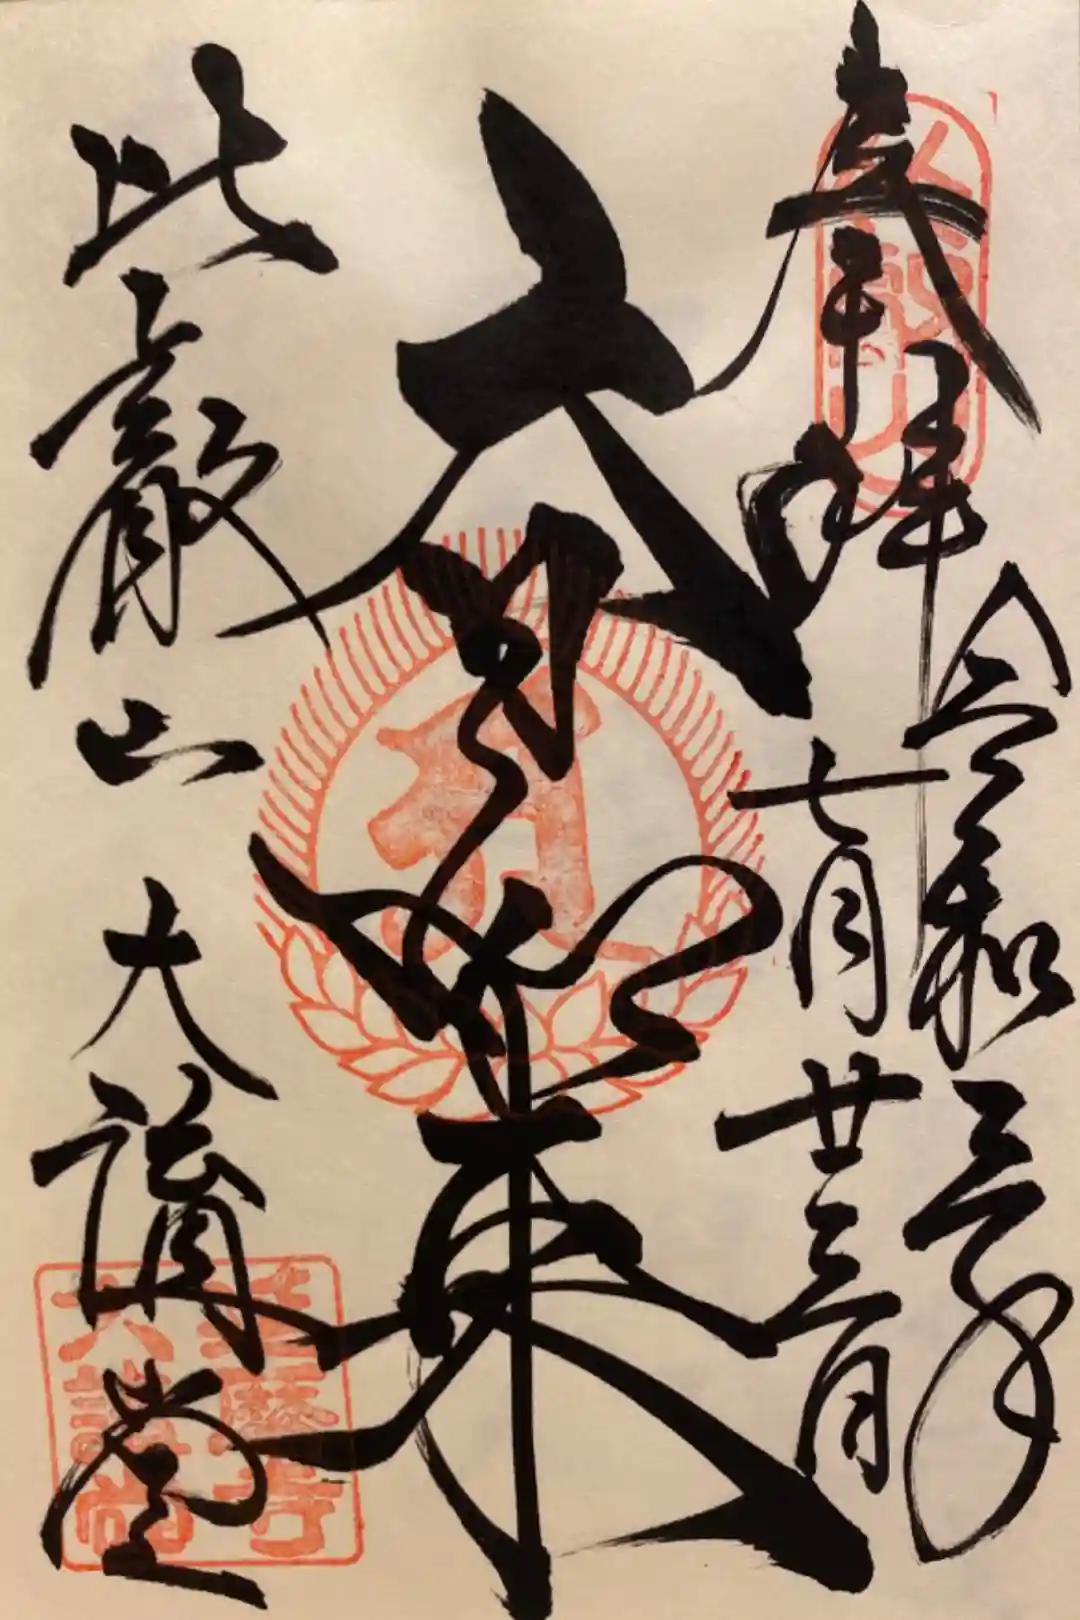 奉拝
令和三年
七月廿三日
大日如来
比叡山 大講堂
比叡山
延暦寺
大講堂